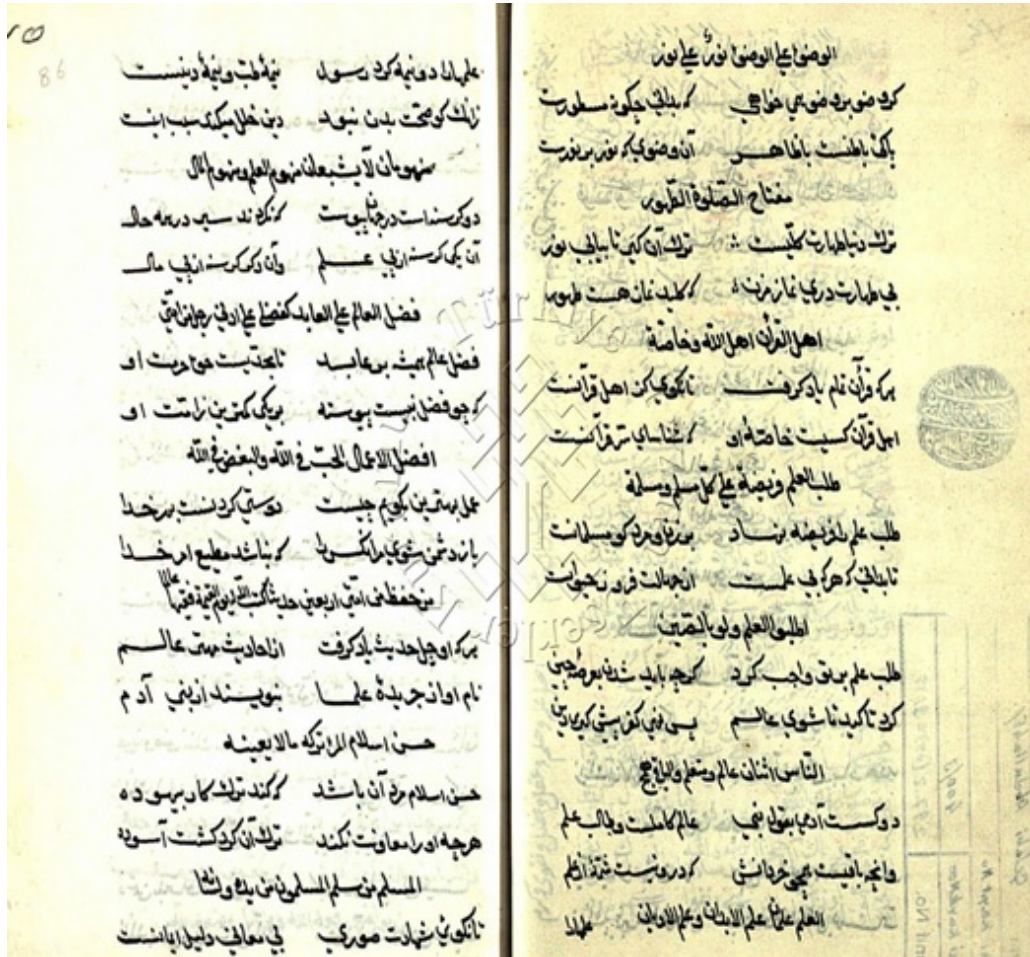 الوضوء علی الوضوء نور علی نور
که بدانی چکونه مسطورت
پاکئ باطنست باظاهر آن وضوی که نور بر نورت
مفتاح الصلوة الطهور
ترك دنیا طهارت کلّیست ترك آن کن تا بیابی نور
بی طهارت دری نماز مزن که کلید نماز هست طهور
اهل القرآن اهل الله وخاصته
هرکه قرآن تمام یاد کرفت تا نکویی کز اهل قرآنست
اهل قرآن کسیست خاصهٔ او که شناسای سرّ قرآنست
طلب العلم فریضة علی کل مسلم ومسلمة
طلب علم را فریضه نهاد بر زن و مرد کو مسلمانست
تا بدانی که هرکه بی علمست از جهان فرون زحیوانست
اطلبوا العلم ولو بالصّین
طلب علم بر تو واجب کرد کرچه باید شدن بعرصهٔ چین
کرد تاکید تا شوی عالم
الناس اثنان عالم ومتعلم والباقی همج
دو کسست آدمی بقول نبی عالم کاملست وطالب علم
وانچه باقیست همچو خر دانش که درو نیست
العلم علمان علم الابدان وعلم الادیان
علمها
علمها را دو نیمه کرد رسول نیمهٔ طبّ ونیمهٔ دینست
زانك کو صحت بدن نبود دین خلل میکیرد سبب اینست
منهومان لا یشبعان منهوم العلم ومنهوم المال
دو کرسنه است در جهان پیوست که نکردند سیر در همه حال
آن یکی کرسنه از پی علم وان دکر کرسنه از پی مال
فضل العالم علی العابد کفضلی علی ادنی رجل من امتی
فضل عالم همیشه بر عابد تا بحدّیست
که چو فضل نبیست پیوسته بر یکی کمترین ز امّت او
افضل الاعمال الحبّ فی الله والبغض فی الله
عمل بهترین بکویم چیست دوستی کردنست بهر خدا
باز دشمن شوی مر انکس را که نباشد مطیع امر خدا
من حفظ من امتی اربعین حدیثا کتب الله یوم القیمة فقیها عالما
هرکه او چل حدیث یاد کرفت از احادیث مهتر عالم
نام او از جریدهٔ علما بنویسند از بنی آدم
حسن اسلام المرء ترکه ما لا یعنیه
حسن اسلام مرد آن باشد که کند ترك کار بیهوده
هرچه او را معاونت نکند ترك آن کرد کشت آسوده
المسلم من سلم المسلمون من یده ولسانه
تا نکویی شهادت صوری بی معانی دلیل ایمانست
86